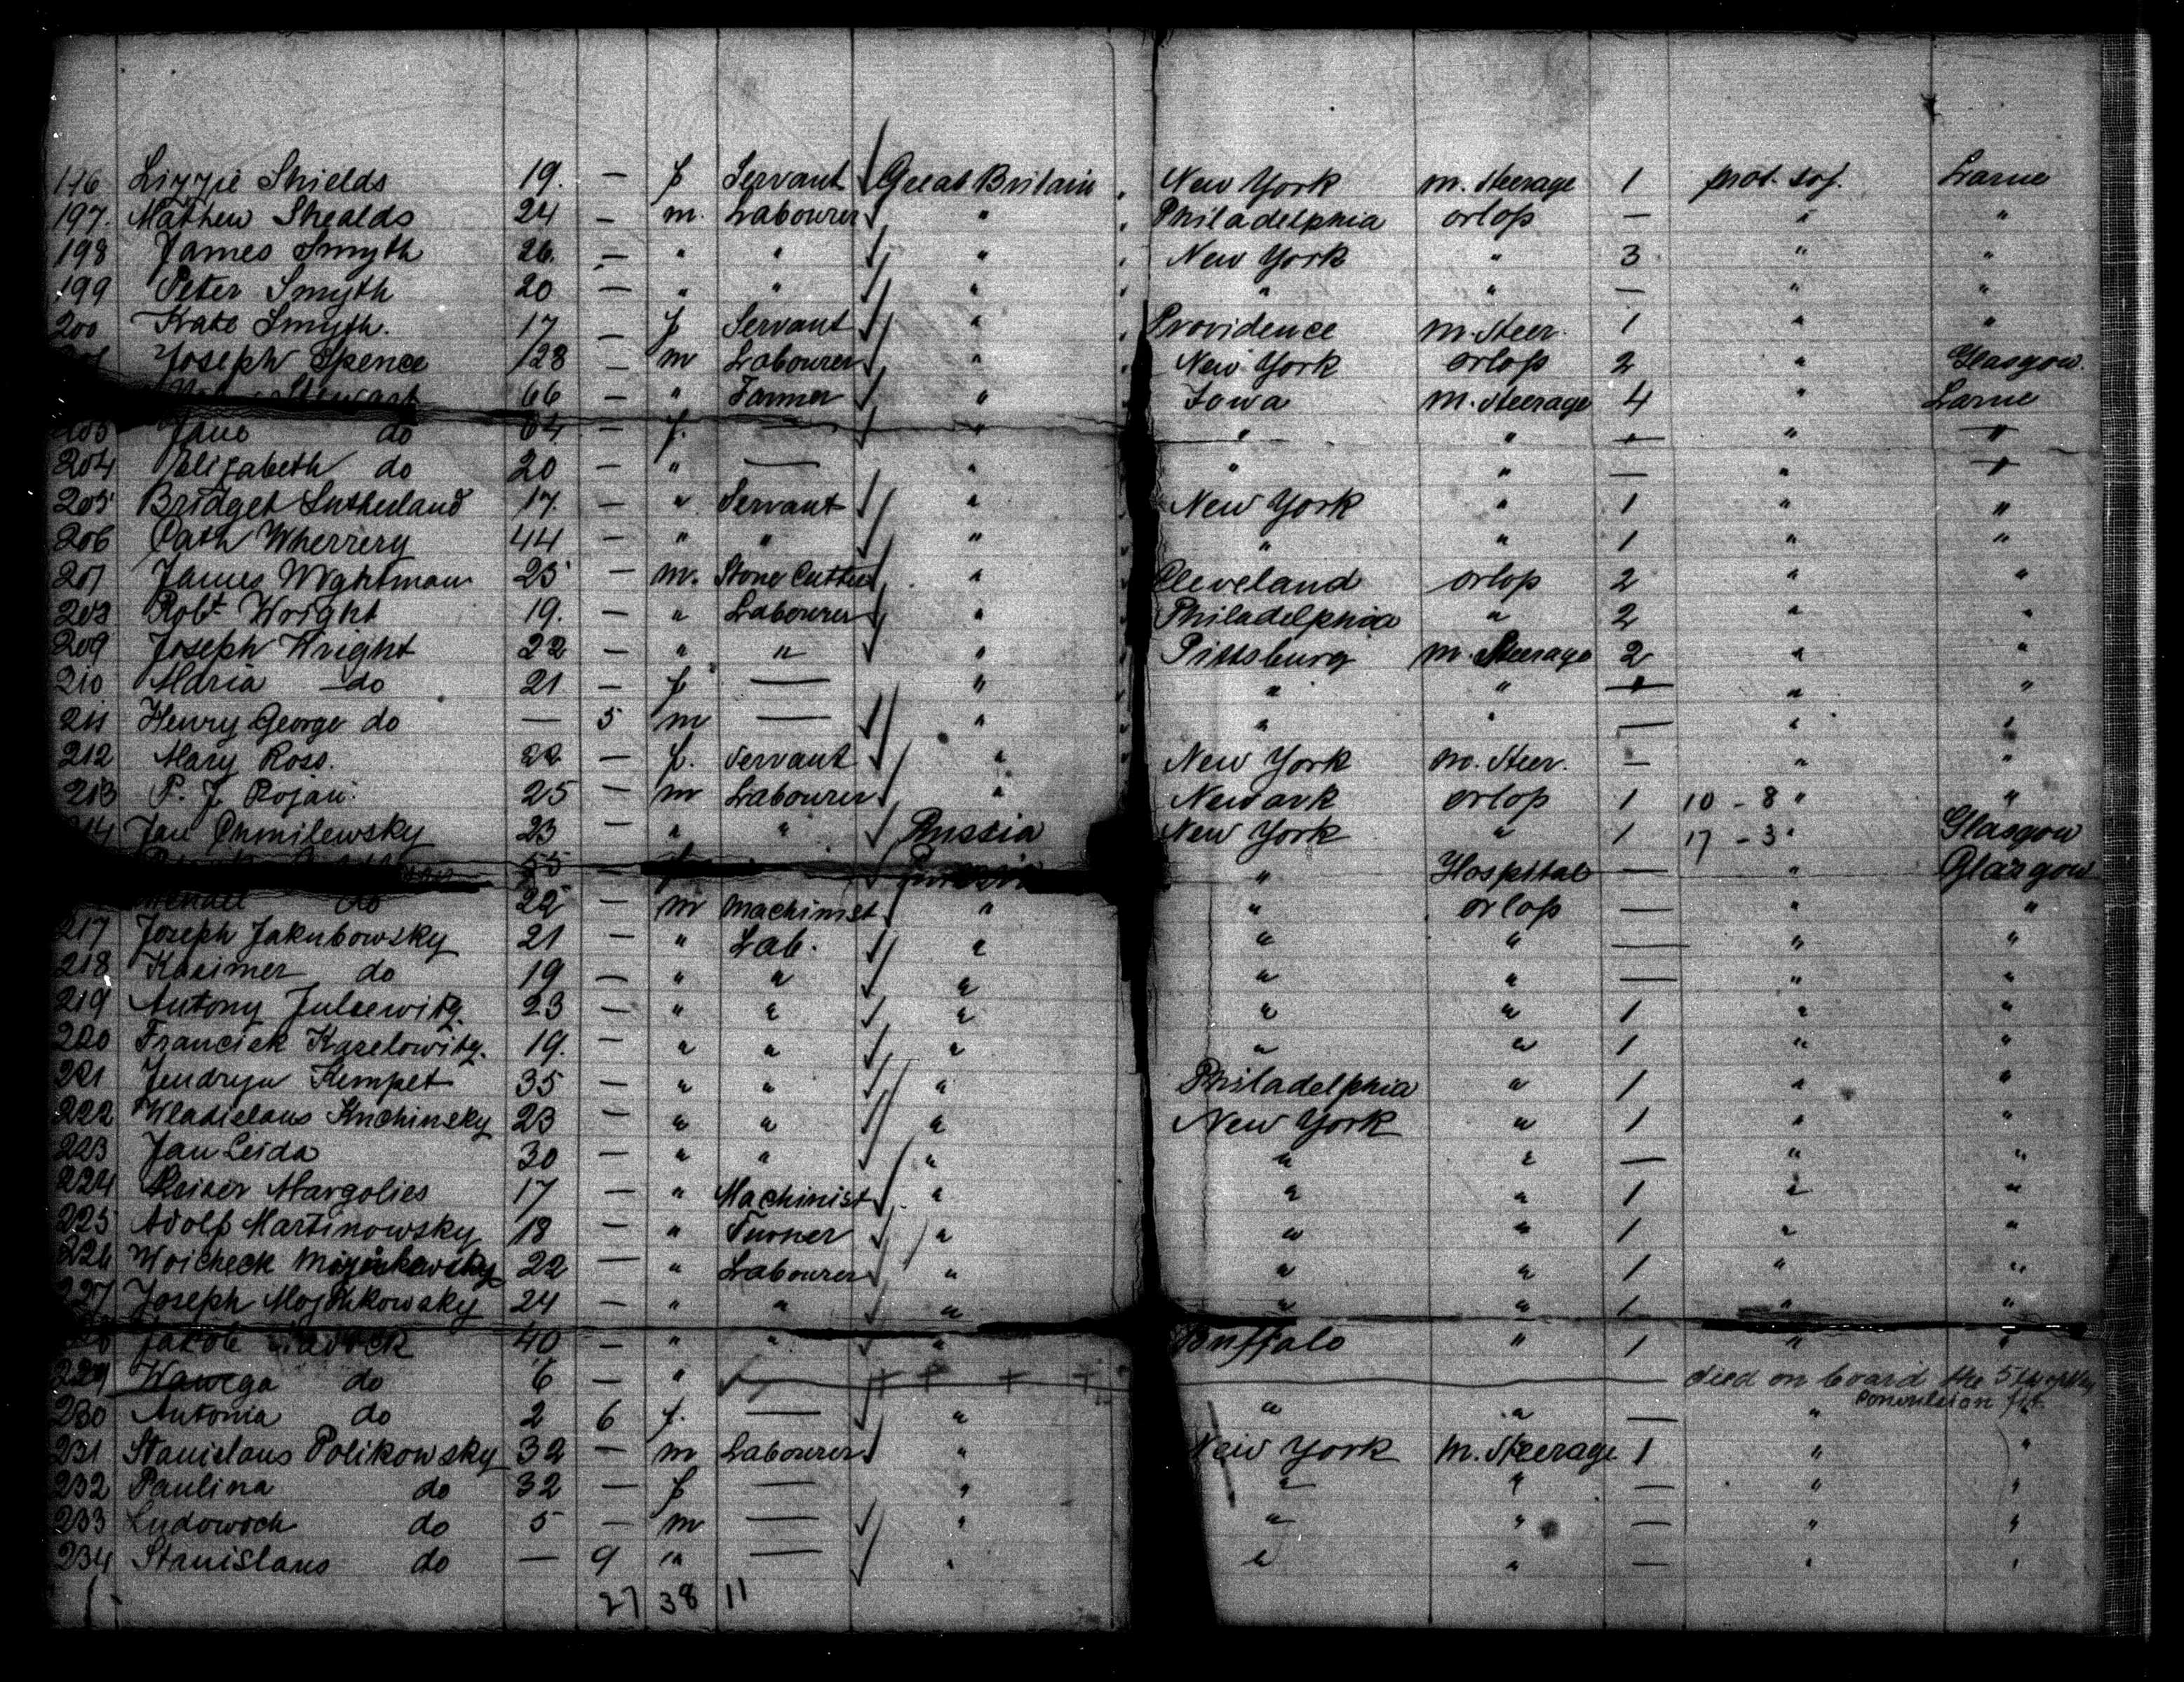 196 Lizzie Shields 19. — f Servant Great Britain New York m. Steerage 1 prot. soj. Larne
197. Mathew Shealds 24 — m. Labourer " Philadelphia orlop — " "
198 James Smyth 26. — " " " New York " 3 " "
199 Peter Smyth 20 — " " " " " — " "
200 Kate Smyth. 17 — f Servant " Providence m. Steer. 1 " "
Joseph Spence 28 — m Labourer " New York orlop 2 " Glasgow.
Stewart 66 — " Farmer " Iowa m. Steerage 4 " Larne
203 Jane do 64 — f. " " " — " "
204 Elizabeth do 20 — " — " " " — " "
205 Bridget Sutherland 17. — " Servant " New York " 1 " "
206 Cath Wherrery 44 — " " " " " 1 " "
207 James Wightman 25 — m. Stone Cutter " Cleveland orlop 2 " "
208 Robt Wright 19. — " Labourer " Philadelphia " 2 " "
209 Joseph Wright 22 — " " " Pittsburg m. Steerage 2 " "
210 Maria do 21 — f — " " " — " "
211 Henry George do — 5 m — " " " — " "
212 Mary Ross. 22 — f. Servant " New York m. Steer. — " "
213 P. J. Rojan. 25 — m Labourer " Newark orlop 1 10 - 8 " "
214 Jan Chmilewsky 23 — " " Russia New York " 1 17 - 3 " Glasgow
55 — " Hospital — " Glasgow
do 22 — m Machinist " " orlop — " "
217 Joseph Jakubowsky 21 — " Lab. " " " — " "
218 Kasimer do 19 — " " " " " — " "
219 Antony Julsewitz 23 — " " " " " 1 " "
220 Francisk Kaselowitz. 19. — " " " " " 1 " "
221 Jendryn Kempet 35 — " " " Philadelphia " 1 " "
222 Wladislaus Kuchinsky 23 — " " " New York " 1 " "
223 Jan Leida 30 — " " " " " — " "
224 Reiser Margolies 17 — " Machinist " " " 1 " "
225 Adolf Martinowsky 18 — " Turner " " " 1 " "
226 Woicheck 22 — " Labourer " " " 1 " "
227 Joseph Moschkowsky 24 — " " " " " 1 " "
Jakob 40 — " " " Buffalo " 1 " "
229 Wawega do 6 — " died on board the 5th
convulsion fit
230 Antonia do 2 6 f. — " " " — " "
231 Stanislaus Polikowsky 32 — m Labourer " New York m. Steerage 1 " "
232 Paulina do 32 — f — " " " — " "
233 Ludowich do 5 — m — " " " — " "
234 Stanislaus do — 9 " — " " " — " "
27 38 11